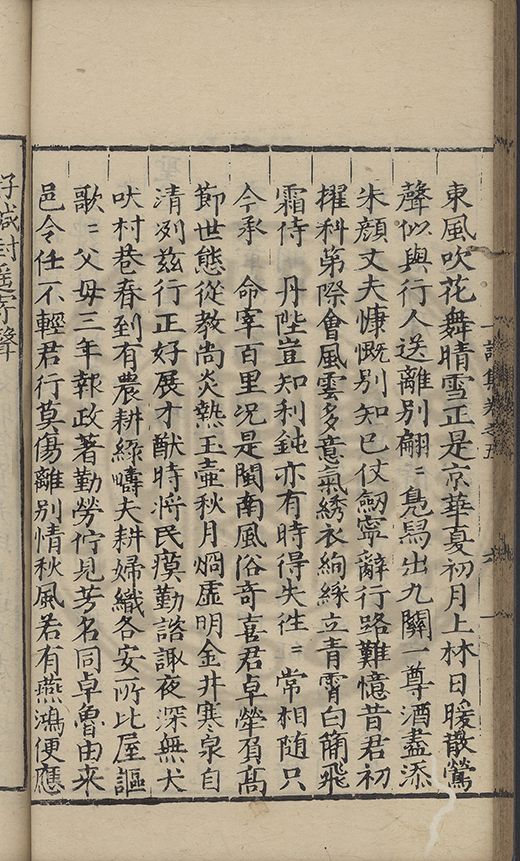 詩集卷之五
六
東風吹花舞晴雪正是京華夏初月上林日暖散鶯
聲似與行人送離別翩〻鳧舄出九關一尊酒盡添
朱顏丈夫慷慨別知已仗劒寧辭行路難憶昔君初
擢科第際會風雲多意氣綉衣絢綵立青霄白簡飛
霜侍　丹陛豈知利鈍亦有時得失徃〻常相隨只
今承　命宰百里况是閩南風俗奇喜君卓犖負高
節世態從教尚炎熱玉壺秋月烱虛明金井寒泉自
清冽茲行正好展才猷時将民瘼勤諮諏夜深無犬
吠村巷春到有農耕綠疇夫耕婦織各安所比屋謳
歌〻父母三年報政著勤勞佇見芳名同卓魯由来
邑令任不輕君行莫傷離別情秋風若有燕鴻便應
好緘封遥寄聲